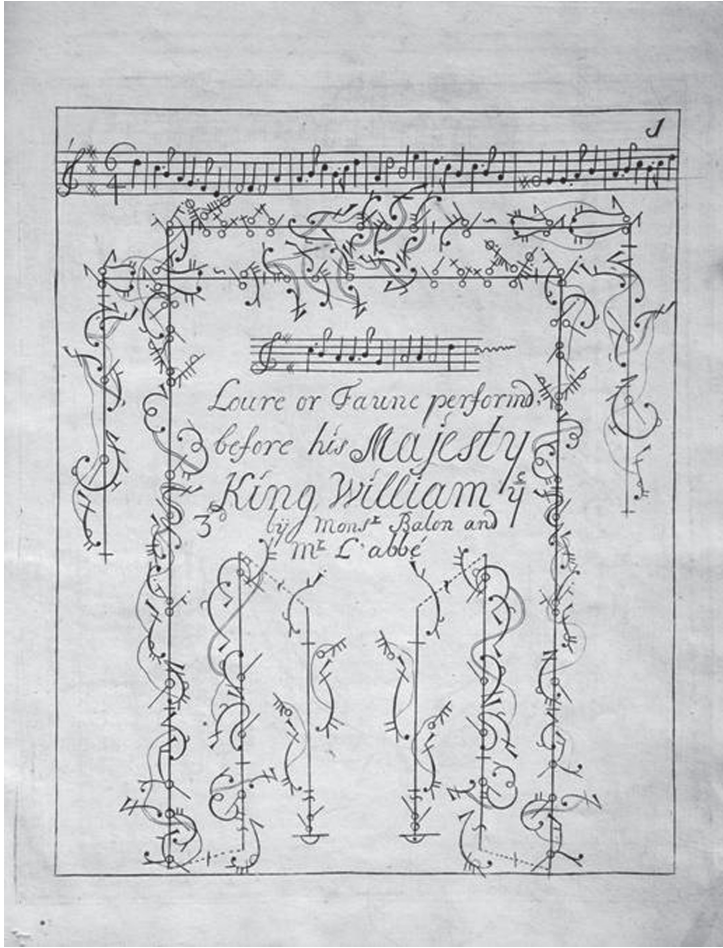 1
6
4
Loure or Faune perform'd
before his Majesty
King William yᵉ
3ᵈ by Monsʳ Balon and
Mʳ L'abbé